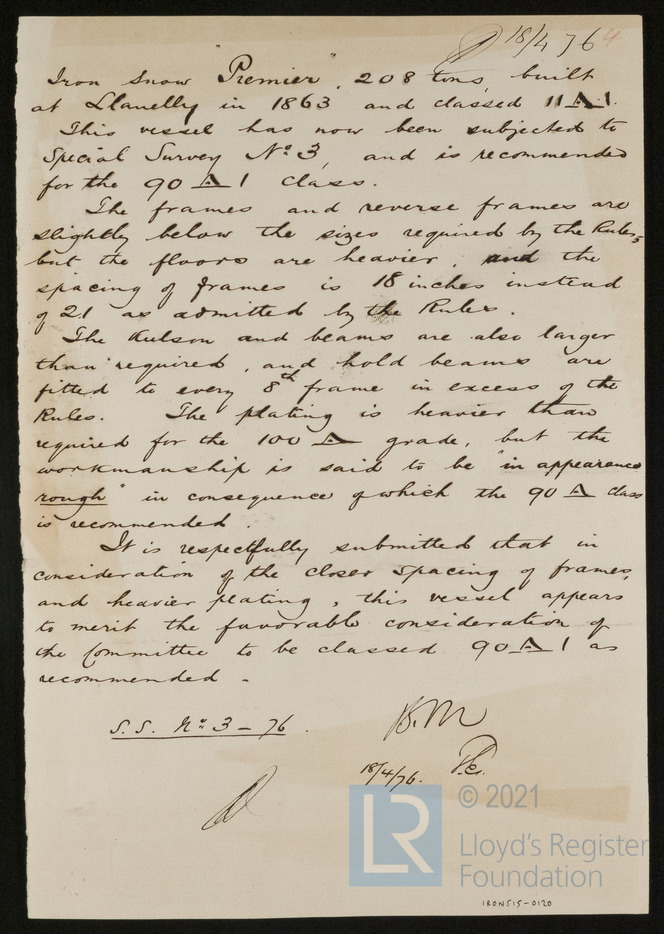 18/4 76 4
Iron Snow "Premier", 208 tons, built
at Llanelly in 1863 and classed 11 A 1.
This vessel has now been subjected to
Special Survey No. 3, and is recommended
for the 90 A 1 class.
The frames and reverse frames are
slightly below the sizes required by the Rules,
but the floors are heavier, and the
spacing of frames is 18 inches instead
of 21 as admitted by the Rules.
The Kulson and beams are also larger
than required, and hold beams are
fitted to every 8th frame in excess of the
Rules. The plating is heavier than
required for the 100 A grade, but the
workmanship is said to be "in appearance
rough" in consequence of which the 90 A class
is recommended.
It is respectfully submitted that in
consideration of the closer spacing of frames,
and heavier plating, this vessel appears
to merit the favorable consideration of
the Committee to be classed 90 A 1 as
recommended.
S.S. No. 3 - 76.
B.M
18/4/76.
LR
© 2021
Lloyd's Register
Foundation
IRON515-0120